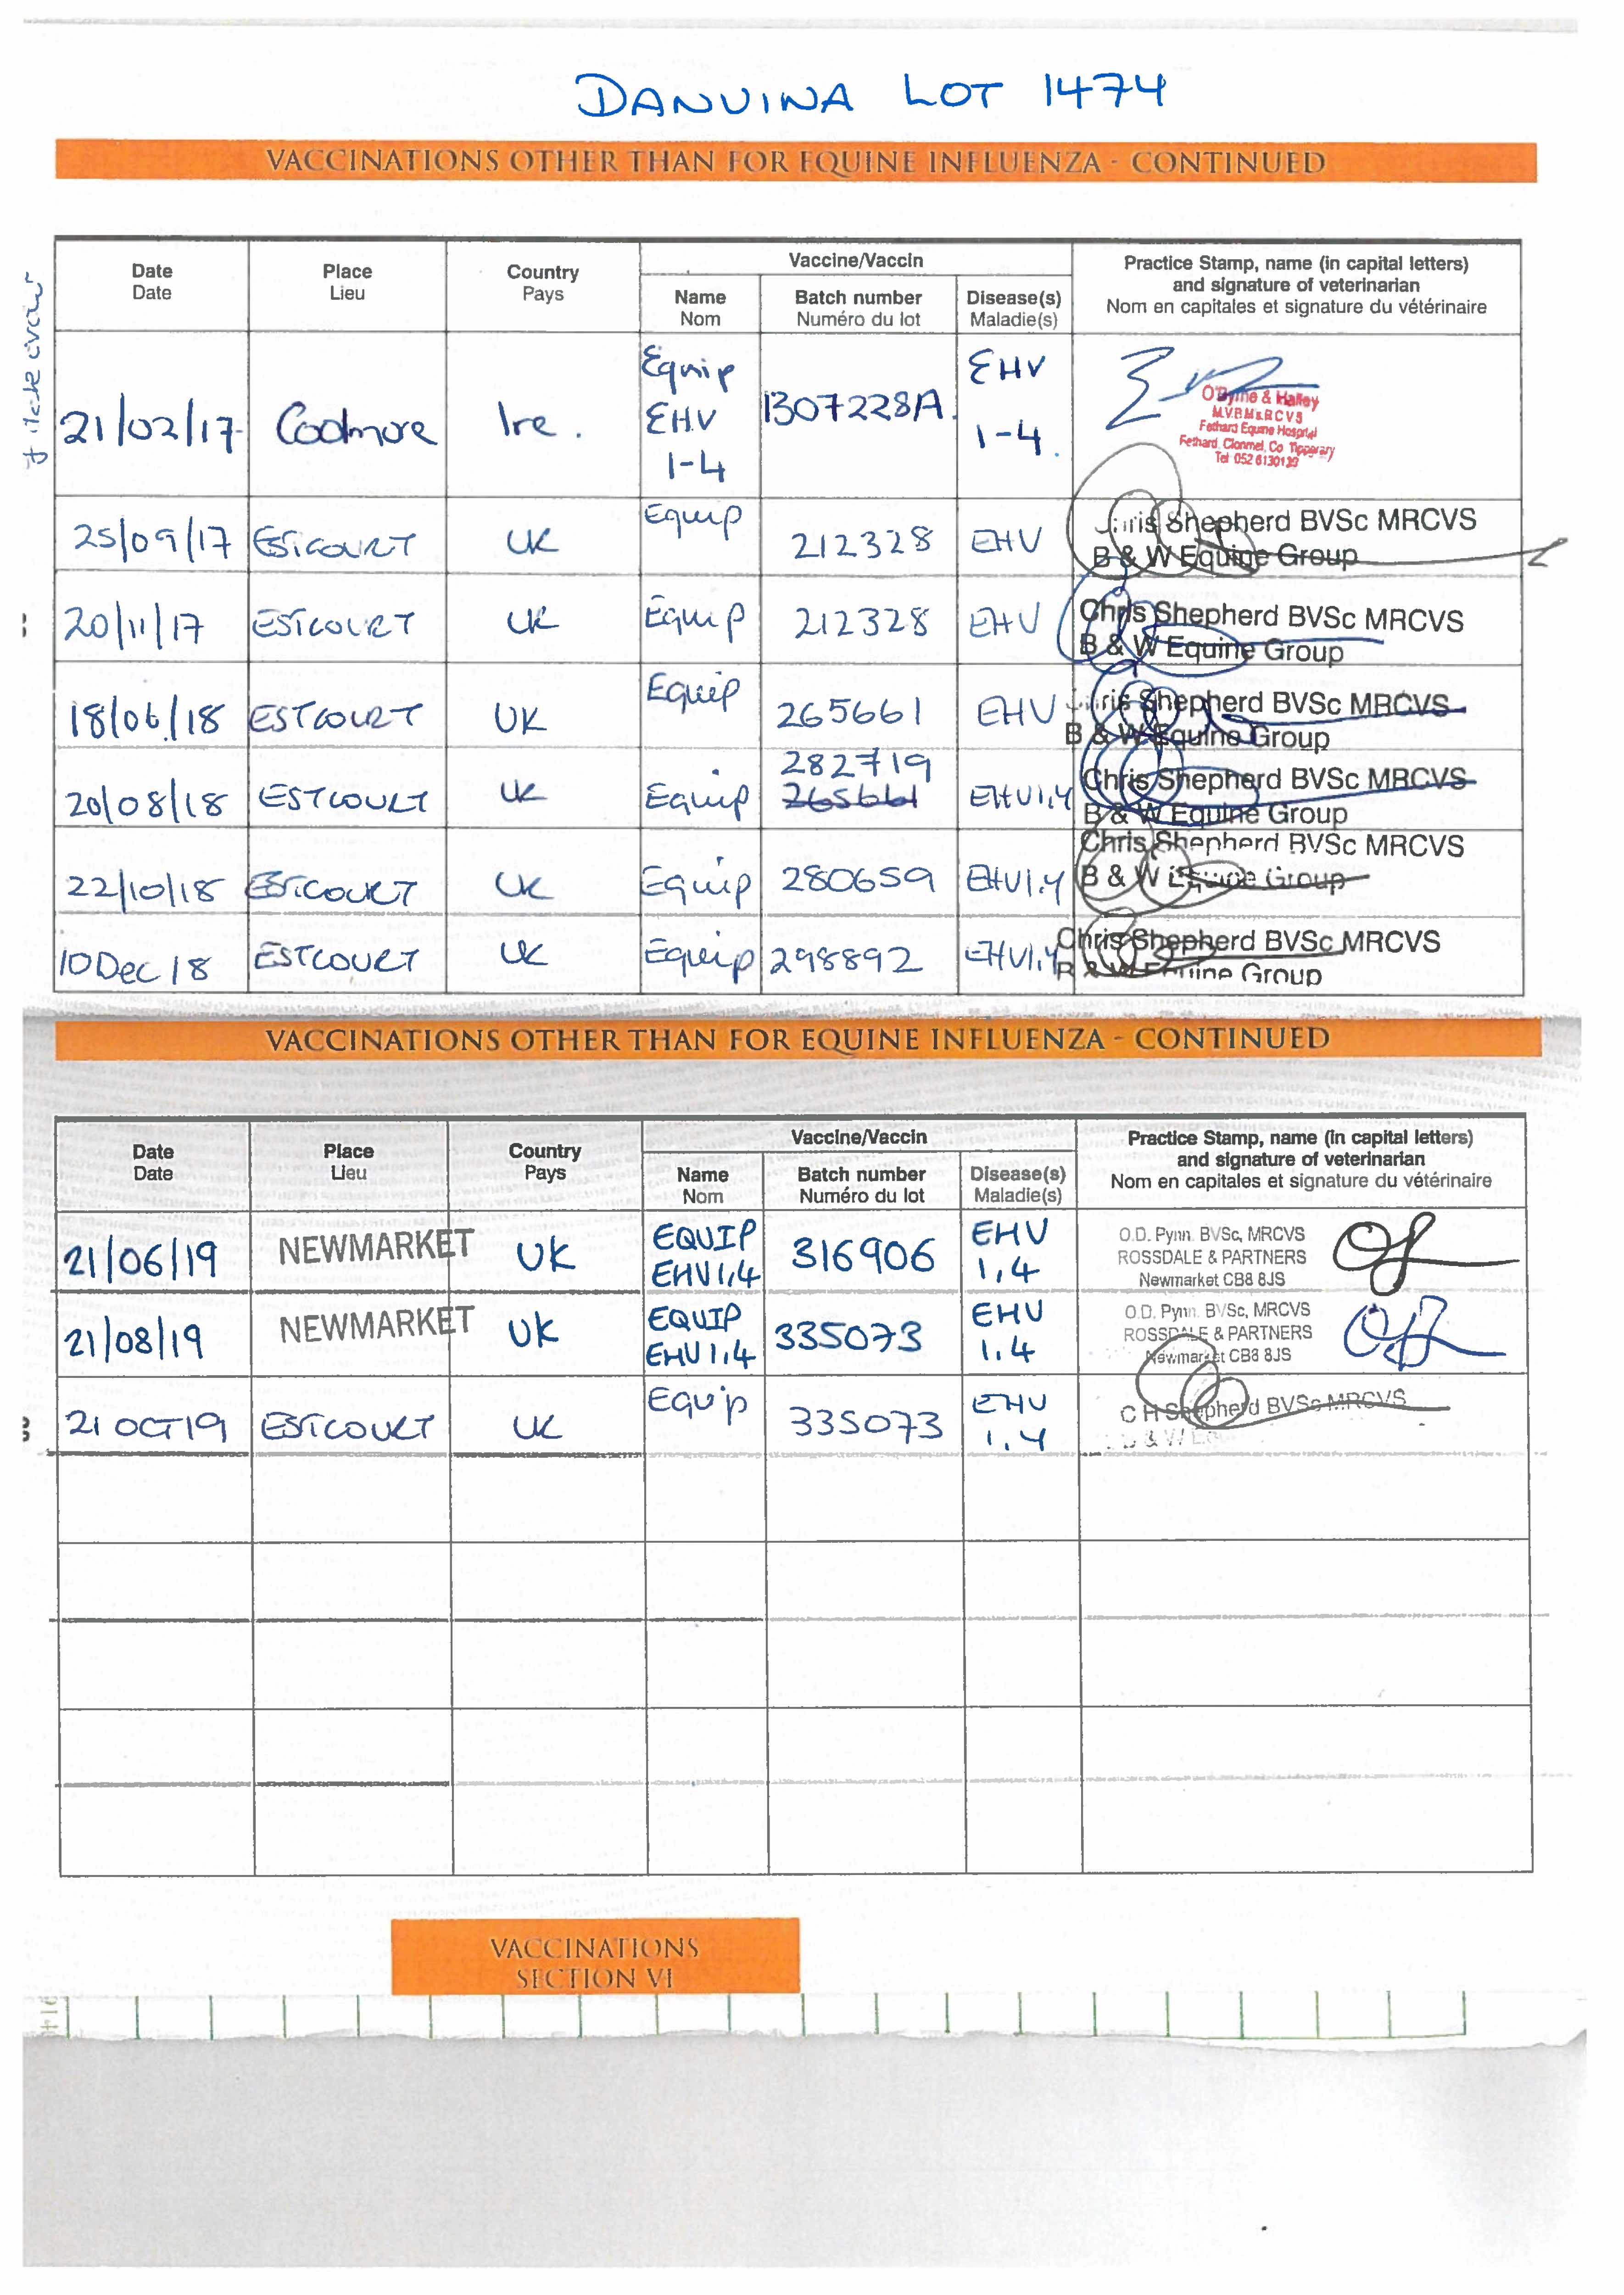 DANUINA LOT 1474
VACCINATIONS OTHER THAN FOR EQUINE INFLUENZA - CONTINUED
Date
Date
Place
Lieu
Country
Pays
Vaccine/Vaccin
Name
Nom
Batch number
Numéro du lot
Disease(s)
Maladie(s)
Practice Stamp, name (in capital letters)
and signature of veterinarian
Nom en capitales et signature du vétérinaire
21/02/17 Coolmore Ire. Equip EHV 1-4 1307228A. EHV 1-4.
O'Byrne & Halley
M.V.B M.R.C.V.S
Fethard Equine Hospital
Fethard, Clonmel, Co Tipperary
Tel: 052 6130139
25/09/17 ESTCOURT UK Equip 212328 EHV Chris Shepherd BVSc MRCVS
B & W Equine Group
20/11/17 ESTCOURT UK Equip 212328 EHV Chris Shepherd BVSc MRCVS
B & W Equine Group
18/06/18 ESTCOURT UK Equip 265661 EHV Chris Shepherd BVSc MRCVS
B & W Equine Group
282719
20/08/18 ESTCOURT UK Equip 265661 EHV1,4 Chris Shepherd BVSc MRCVS
B & W Equine Group
22/10/18 ESTCOURT UK Equip 280659 EHV1,4 Chris Shepherd BVSc MRCVS
B & W Equine Group
10 Dec 18 ESTCOURT UK Equip 298892 EHV1,4 Chris Shepherd BVSc MRCVS
B & W Equine Group
VACCINATIONS OTHER THAN FOR EQUINE INFLUENZA - CONTINUED
Date
Date
Place
Lieu
Country
Pays
Vaccine/Vaccin
Name
Nom
Batch number
Numéro du lot
Disease(s)
Maladie(s)
Practice Stamp, name (in capital letters)
and signature of veterinarian
Nom en capitales et signature du vétérinaire
21/06/19 NEWMARKET UK EQUIP EHV 1,4 316906 EHV 1,4
O.D. Pynn. BVSc, MRCVS
ROSSDALE & PARTNERS
Newmarket CB8 8JS
21/08/19 NEWMARKET UK EQUIP EHV 1,4 335073 EHV 1,4
O.D. Pynn. BVSc, MRCVS
ROSSDALE & PARTNERS
Newmarket CB8 8JS
21 OCT 19 ESTCOURT UK Equip 335073 EHV 1,4
C H Shepherd BVSc MRCVS
B & W
VACCINATIONS
SECTION VI